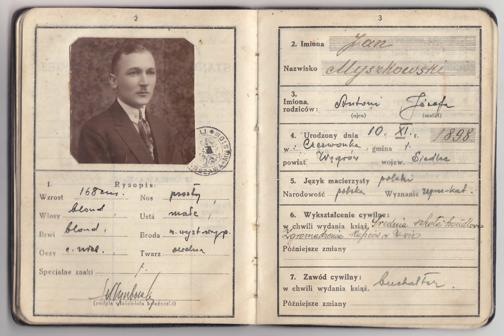 2
I. Rysopis:
Wzrost 168 cm. Nos prosty
Włosy blond Usta małe
Brwi blond Broda
Oczy Twarz owalna
Specjalne znaki
(podpis właściciela książeczki)
3
2. Imiona Jan
Nazwisko Myszkowski
3.
Imiona rodziców: Antoni Józefa
(ojca) (matki)
4. Urodzony dnia 10. XI. 1898
w Czerwonka, gmina
powiat Węgrów wojew. Siedlce
5. Język macierzysty polski
Narodowość polska Wyznanie rzym-kat.
6. Wykształcenie cywilne:
w chwili wydania książ. Średnia szkoła handlowa
Zgromadzenia Kupców
Późniejsze zmiany
7. Zawód cywilny:
w chwili wydania książ. buchalter.
Późniejsze zmiany